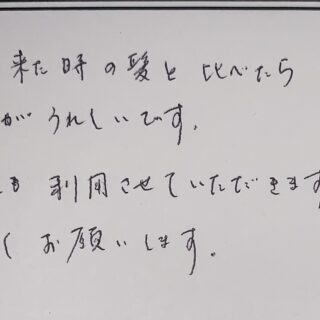 来た時の髪と比べたら
がうれしいです。
も利用させていただきます
くお願いします。